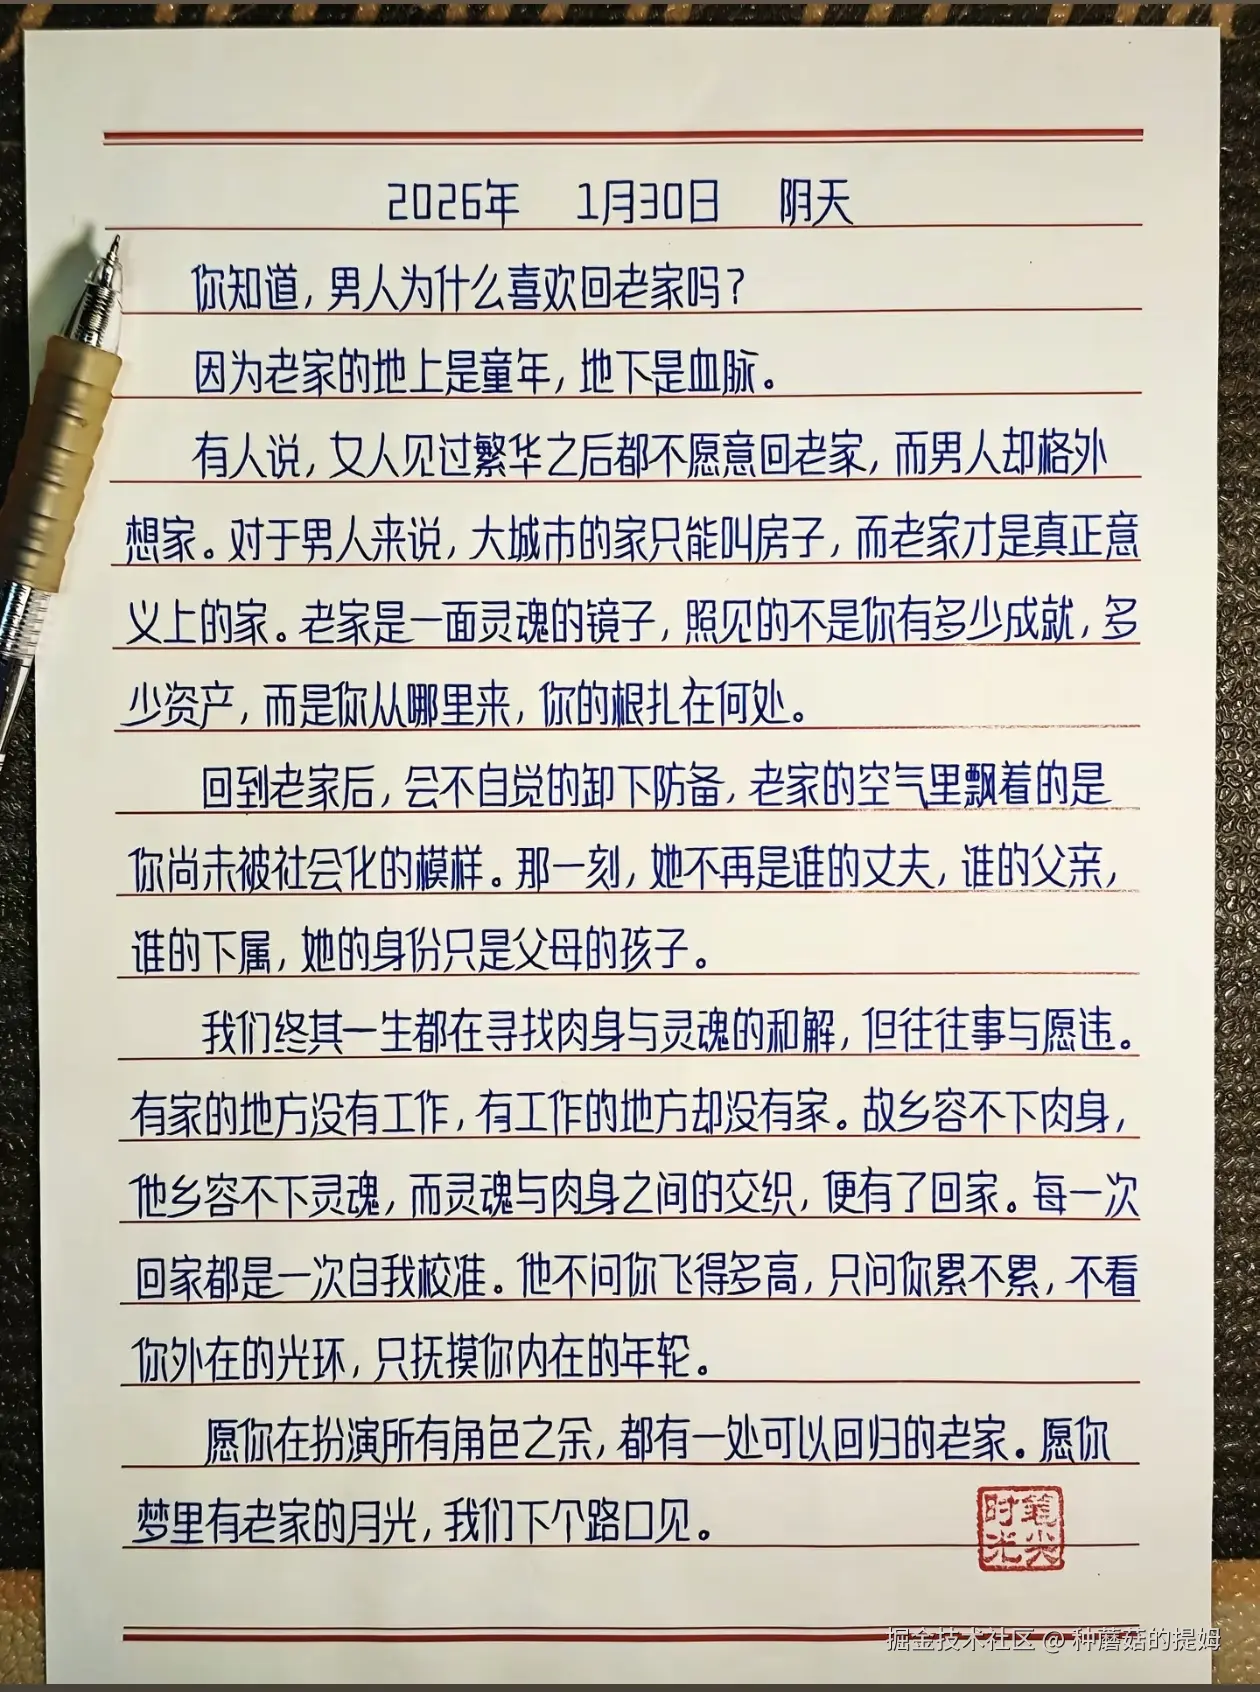 2026年 1月30日 阴天
你知道，男人为什么喜欢回老家吗？
因为老家的地上是童年，地下是血脉。
有人说，女人见过繁华之后都不愿意回老家，而男人却格外
想家。对于男人来说，大城市的家只能叫房子，而老家才是真正意
义上的家。老家是一面灵魂的镜子，照见的不是你有多少成就，多
少资产，而是你从哪里来，你的根扎在何处。
回到老家后，会不自觉的卸下防备，老家的空气里飘着的是
你尚未被社会化的模样。那一刻，她不再是谁的丈夫，谁的父亲，
谁的下属，她的身份只是父母的孩子。
我们终其一生都在寻找肉身与灵魂的和解，但往往事与愿违。
有家的地方没有工作，有工作的地方却没有家。故乡容不下肉身，
他乡容不下灵魂，而灵魂与肉身之间的交织，便有了回家。每一次
回家都是一次自我校准。他不问你飞得多高，只问你累不累，不看
你外在的光环，只抚摸你内在的年轮。
愿你在扮演所有角色之余，都有一处可以回归的老家。愿你
梦里有老家的月光，我们下个路口见。
笔尖时光
掘金技术社区 @ 种蘑菇的提姆